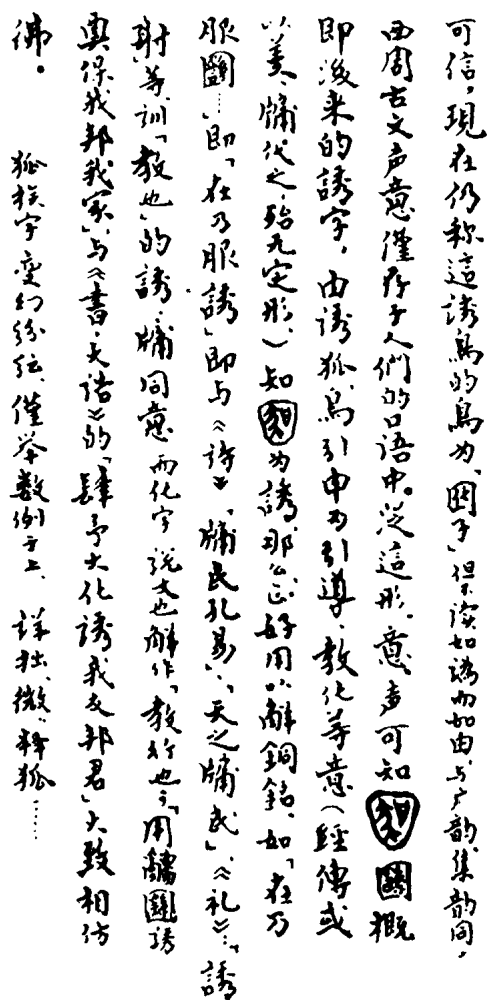 可信，現在仍称這誘鳥的鳥为「囮子」但不读如譌而如由，与广韵、集韵同，
西周古文声意僅存于人們的口语中。從這形、意、声可知 概
即後来的誘字，由誘狐、鳥引申为引導、教化等意（經傳或
以羑、牖代之，殆无定形、）知 为誘，那么正好用以解銅銘，如「在乃
服 ……」即「在乃服誘」即与《诗》「牖民孔易」、「天之牖民」、《礼》…「誘
射」等訓「教也」的誘、牖同意 而化字说文也解作「教行也」；「用 誘
奥保我邦我家」与《書·大诰》的「肆予大化誘我友邦君」大致相仿
佛。
狐族字变幻纷纭，僅举数例于上、详拙、微：释狐……